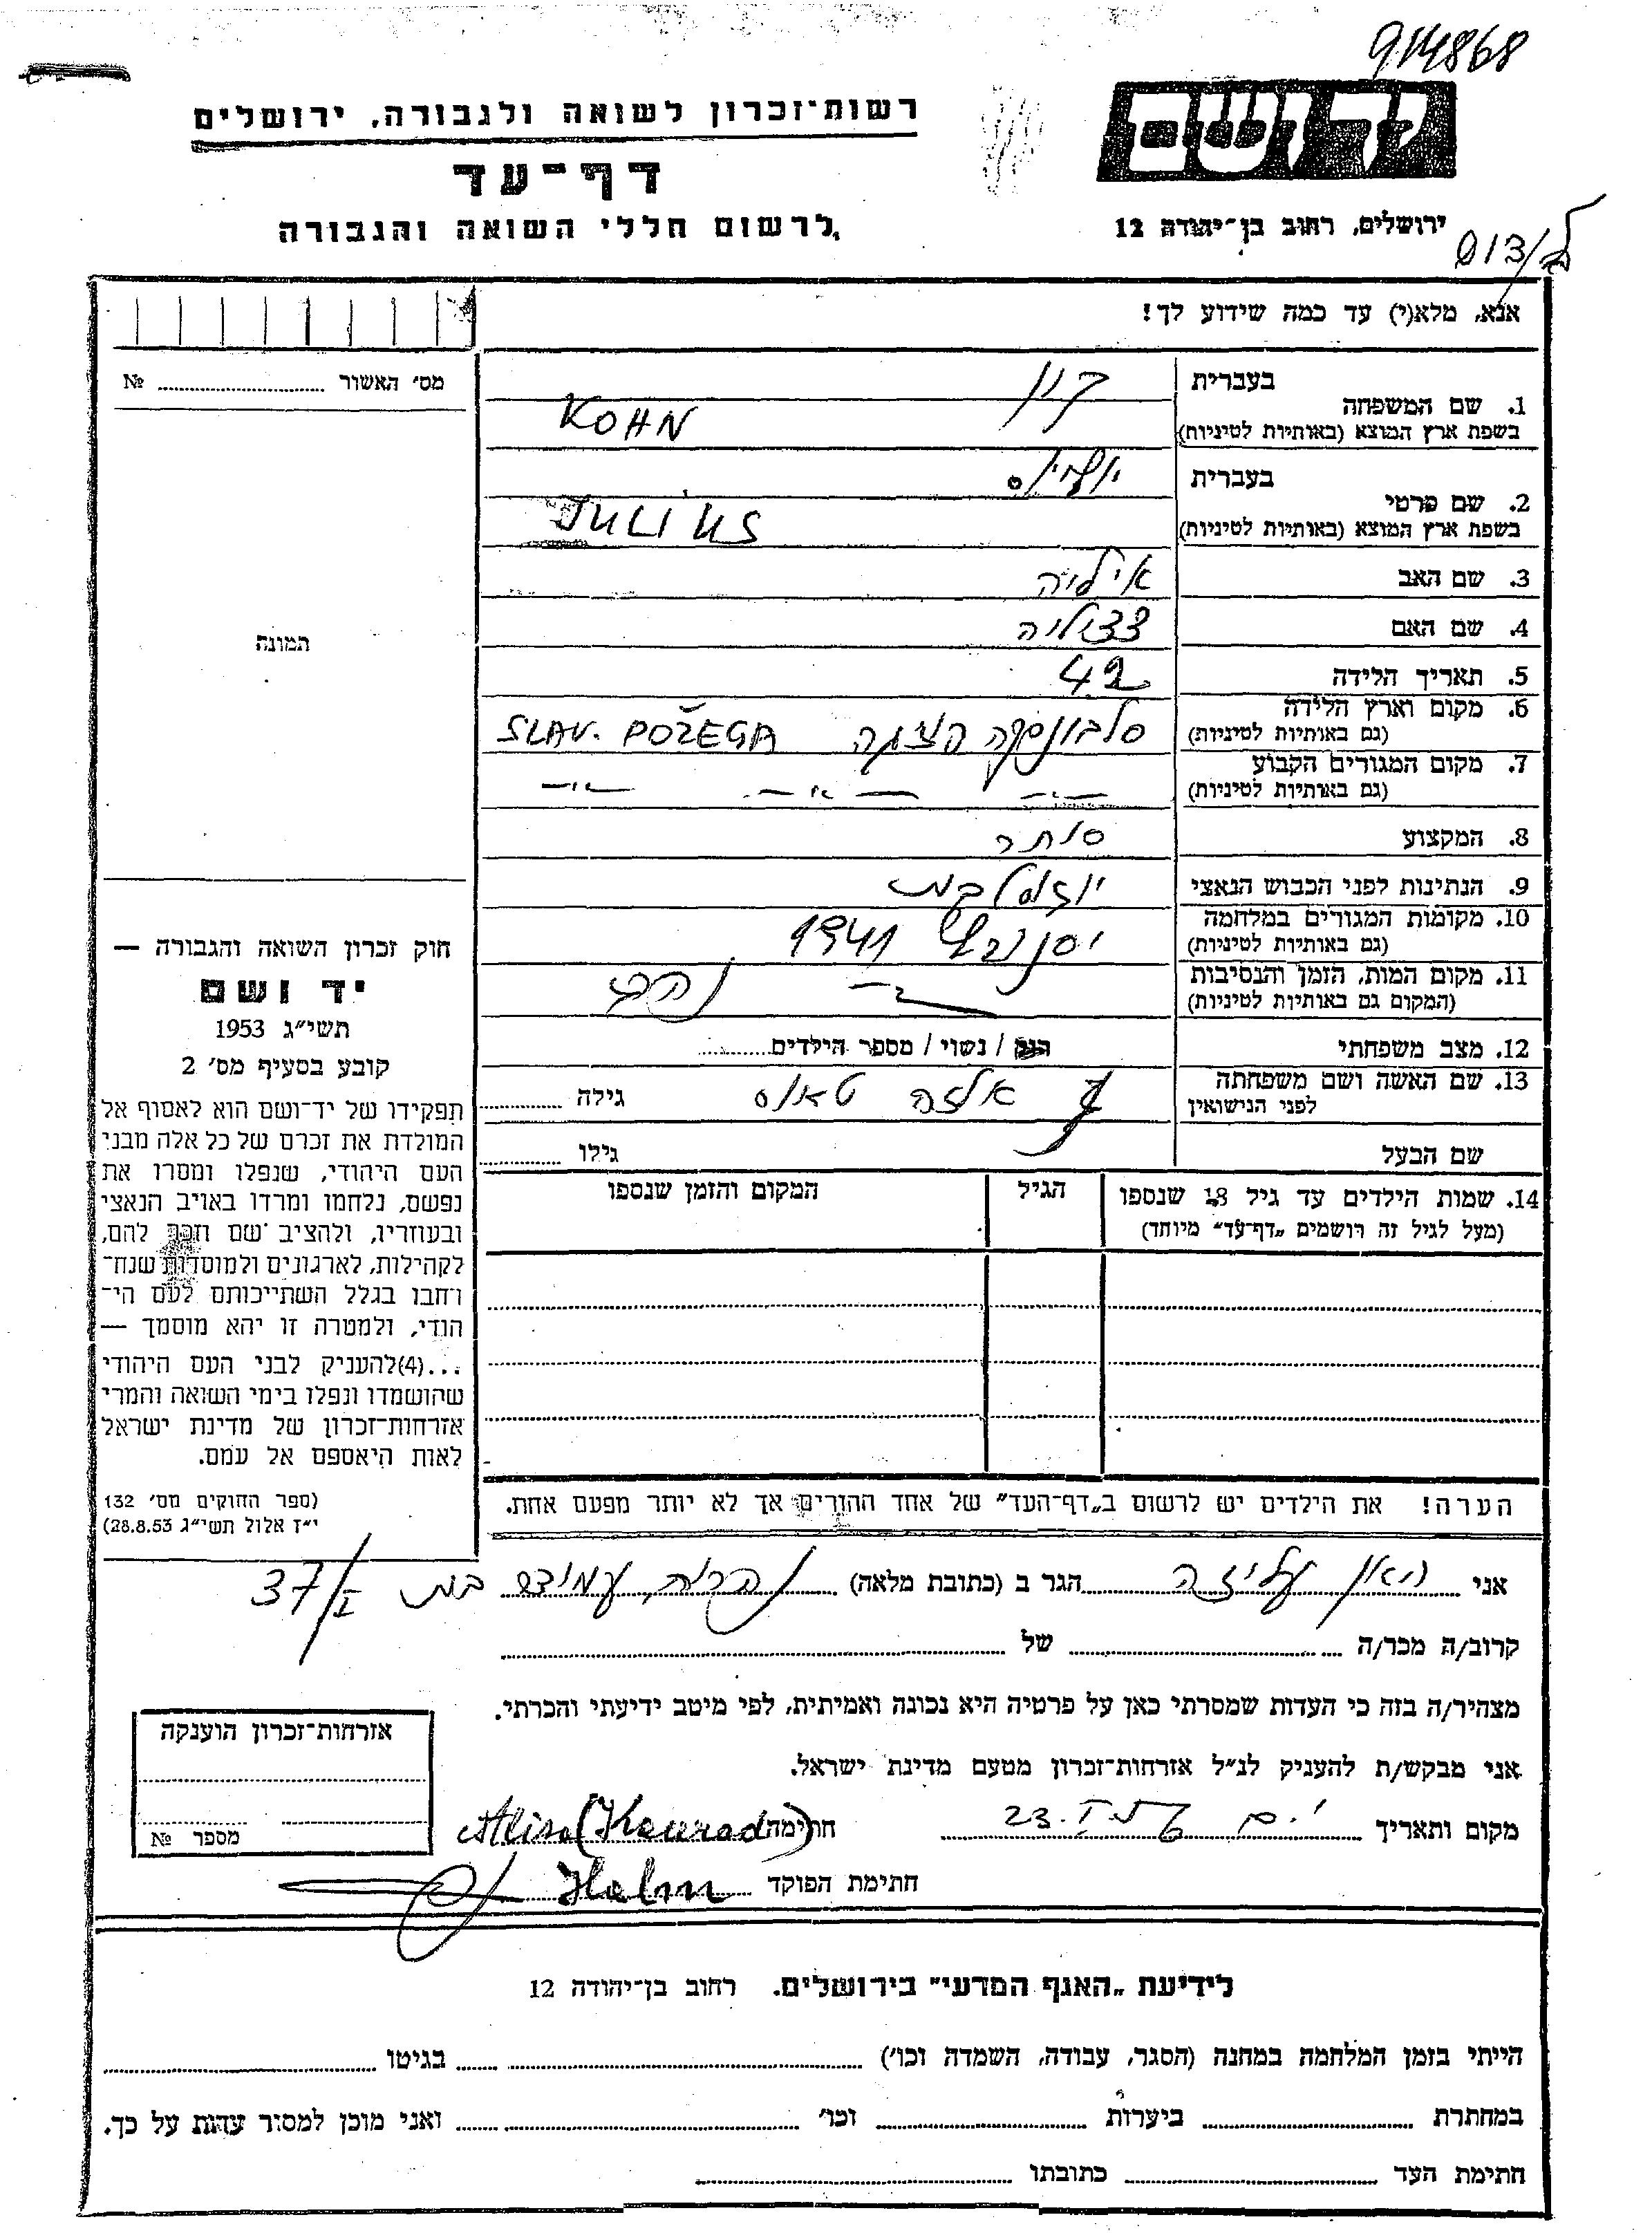 914868
יד ושם
רשות־זכרון לשואה ולגבורה, ירושלים
דף־עד
לרשום חללי השואה והגבורה
ירושלים, רחוב בן־יהודה 12
אנא, מלא(י) עד כמה שידוע לך!
מס׳ האשור ........ №
התמונה
1. שם המשפחה
בעברית קון
בשפת ארץ המוצא (באותיות לטיניות) KOHN
2. שם פרטי
בעברית יוליוס
בשפת ארץ המוצא (באותיות לטיניות) JULIUS
3. שם האב איליה
4. שם האם צציליה
5. תאריך הלידה 42
6. מקום וארץ הלידה סלבונסקה פוז׳גה SLAV. POŽEGA
(גם באותיות לטיניות)
7. מקום המגורים הקבוע — " — — " — — " —
(גם באותיות לטיניות)
8. המקצוע סוחר
9. הנתינות לפני הכבוש הנאצי יוגוסלבית
10. מקומות המגורים במלחמה 1941
(גם באותיות לטיניות)
11. מקום המות, הזמן והנסיבות
(המקום גם באותיות לטיניות)
12. מצב משפחתי רווק / נשוי / מספר הילדים........
13. שם האשה ושם משפחתה אלזה גילה ........
לפני הנישואין
שם הבעל גילו ........
14. שמות הילדים עד גיל 18 שנספו הגיל המקום והזמן שנספו
(מעל לגיל זה רושמים „דף־עד” מיוחד)
הערה! את הילדים יש לרשום ב„דף־העד” של אחד ההורים אך לא יותר מפעם אחת.
חוק זכרון השואה והגבורה —
יד ושם
תשי״ג 1953
קובע בסעיף מס׳ 2
תפקידו של יד־ושם הוא לאסוף אל
המולדת את זכרם של כל אלה מבני
העם היהודי, שנפלו ומסרו את
נפשם, נלחמו ומרדו באויב הנאצי
ובעוזריו, ולהציב שם וזכר להם,
לקהילות, לארגונים ולמוסדות שנח־
רבו בגלל השתייכותם לעם הי־
הודי, ולמטרה זו יהא מוסמך —
...(4)להעניק לבני העם היהודי
שהושמדו ונפלו בימי השואה והמרי
אזרחות־זכרון של מדינת ישראל
לאות היאספם אל עמם.
(ספר החוקים מס׳ 132
י״ז אלול תשי״ג 28.8.53)
אני עליזה הגר ב (כתובת מלאה) 37/I
קרוב/ה מכר/ה ........ של ........
מצהיר/ה בזה כי העדות שמסרתי כאן על פרטיה היא נכונה ואמיתית, לפי מיטב ידיעתי והכרתי.
אני מבקש/ת להעניק לנ״ל אזרחות־זכרון מטעם מדינת ישראל.
מקום ותאריך 23. חתימה Alisa
חתימת הפוקד
אזרחות־זכרון הוענקה
מספר №
לידיעת „האגף המדעי” בירושלים. רחוב בן־יהודה 12
הייתי בזמן המלחמה במחנה (הסגר, עבודה, השמדה וכו׳) ........ בגיטו ........
במחתרת ........ ביערות ........ וכו׳ ........ ואני מוכן למסור עדות על כך.
חתימת העד ........ כתובתו ........